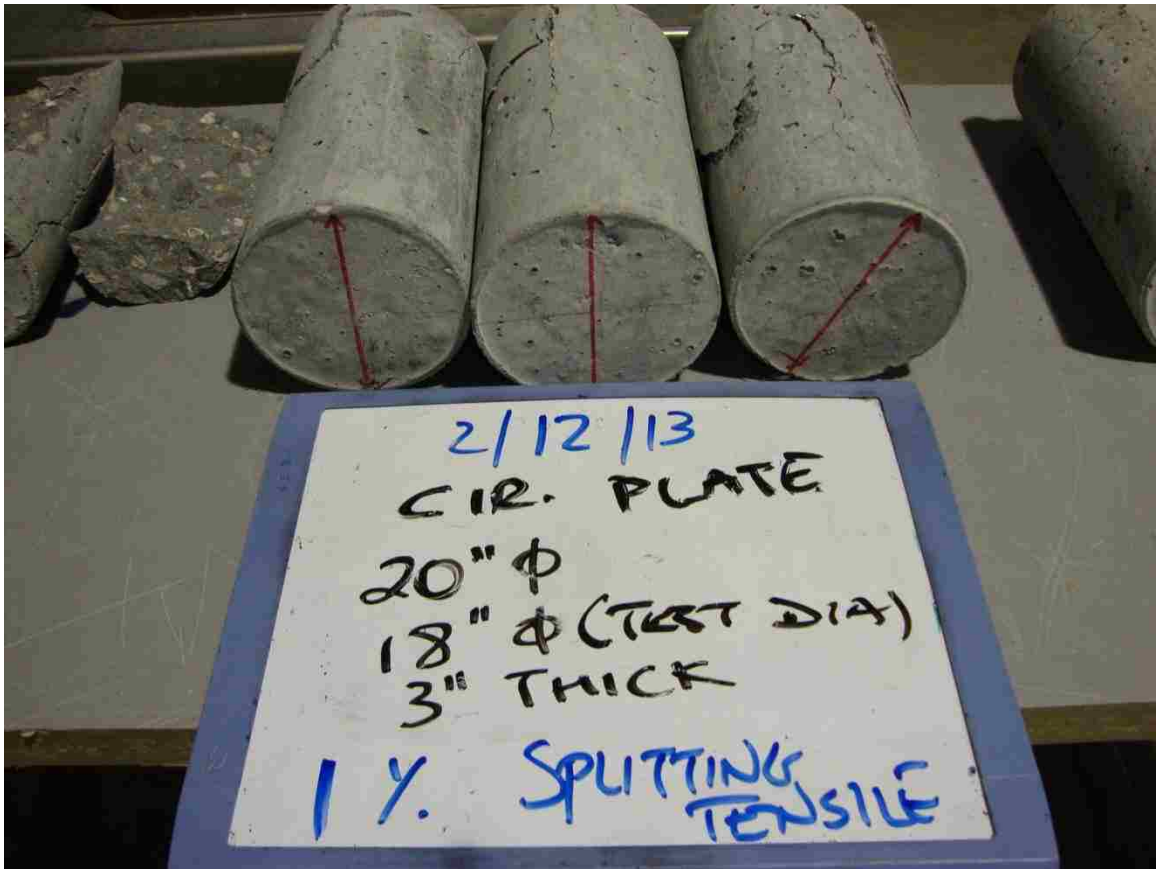 2/12/13
CIR. PLATE
20" φ
18" φ (TEST DIA)
3" THICK
1 %. SPLITTING
TENSILE